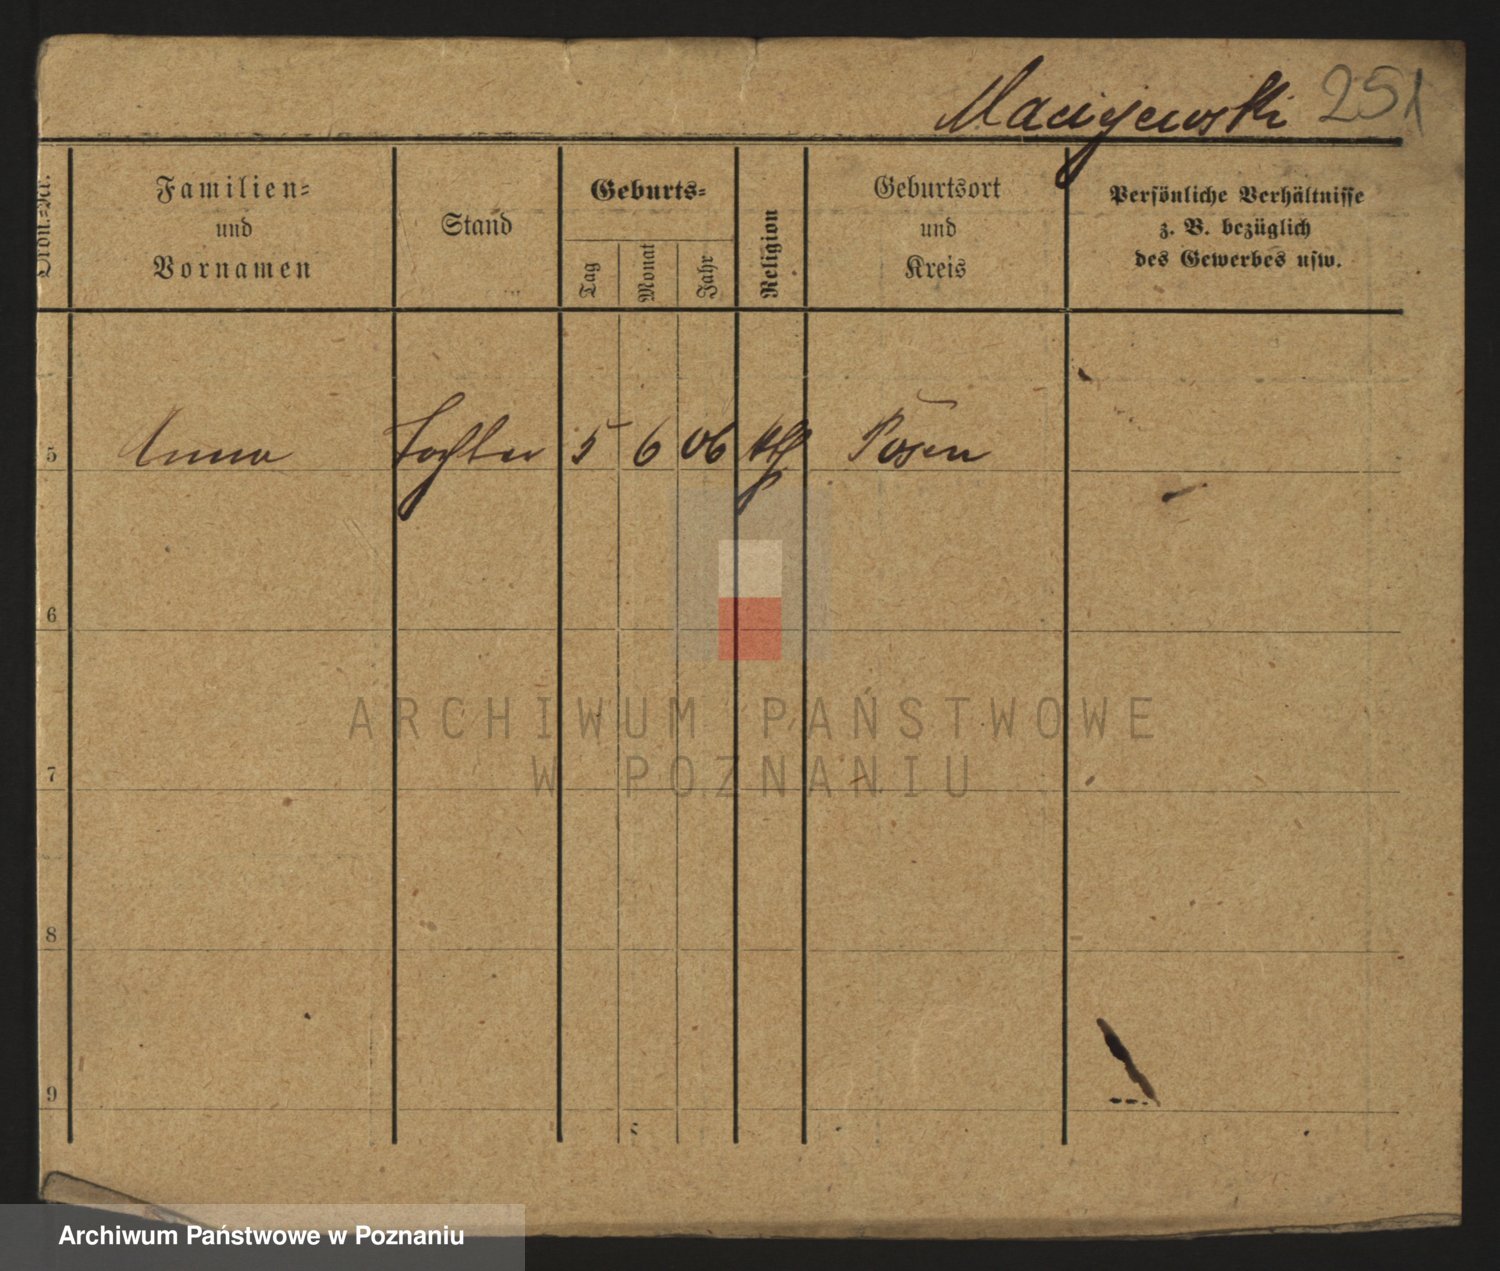 Maciejewski 251
Ordn.-Nr.
Familien-
und
Vornamen
Stand
Geburts-
Tag
Monat
Jahr
Religion
Geburtsort
und
Kreis
Persönliche Verhältnisse
z. B. bezüglich
des Gewerbes usw.
5 Anna Tochter 5 6 06 kth Posen
6
7
8
9
ARCHIWUM PAŃSTWOWE
W POZNANIU
Archiwum Państwowe w Poznaniu